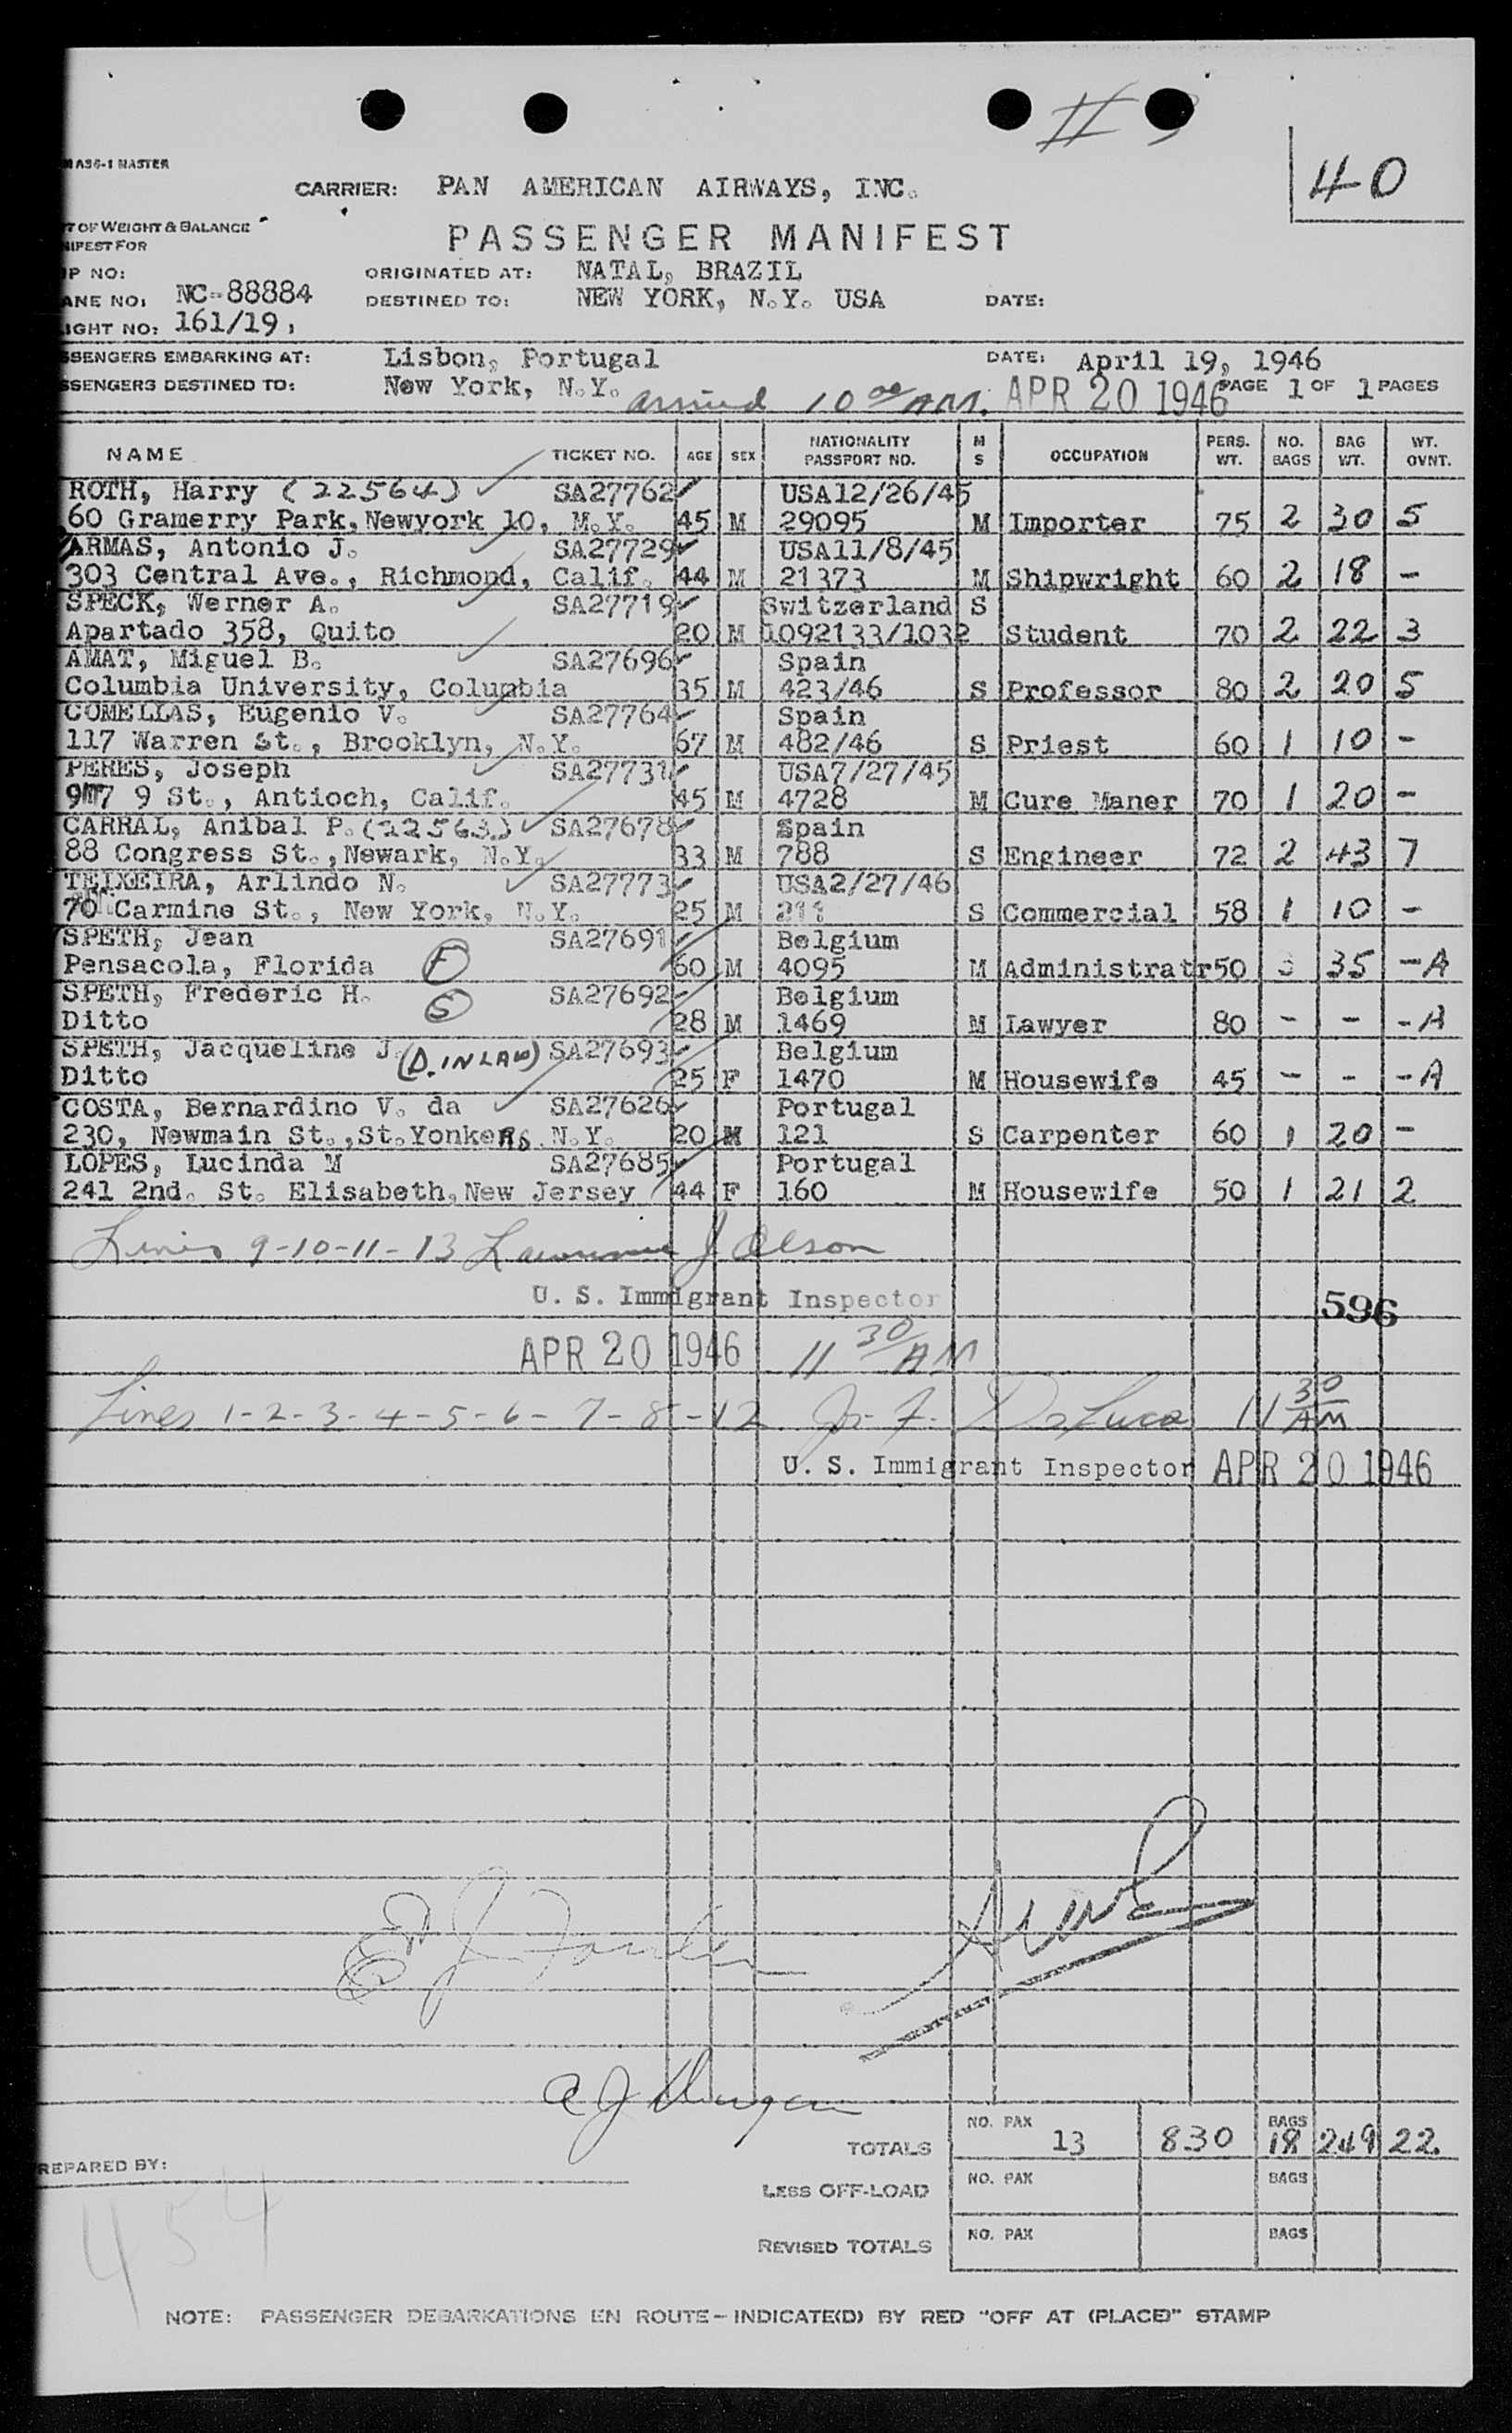 # 3
40
M A36-1 MASTER
CARRIER: PAN AMERICAN AIRWAYS, INC.
T OF WEIGHT & BALANCE
NIFEST FOR
PASSENGER MANIFEST
IP NO:
ORIGINATED AT: NATAL, BRAZIL
ANE NO: NC-88884
DESTINED TO: NEW YORK, N.Y. USA DATE:
IGHT NO: 161/19
SSENGERS EMBARKING AT: Lisbon, Portugal DATE: April 19, 1946
SSENGERS DESTINED TO: New York, N.Y. arrived 10 00 AM. APR 20 1946 PAGE 1 OF 1 PAGES
NAME TICKET NO. AGE SEX NATIONALITY PASSPORT NO. M S OCCUPATION PERS. WT. NO. BAGS BAG WT. WT. OVNT.
ROTH, Harry (22564) SA27762 USA12/26/45
60 Gramerry Park, Newyork 10, M.Y. 45 M 29095 M Importer 75 2 30 5
ARMAS, Antonio J. SA27729 USA11/8/45
303 Central Ave., Richmond, Calif. 44 M 21373 M Shipwright 60 2 18 -
SPECK, Werner A. SA27719 Switzerland S
Apartado 358, Quito 20 M 1092133/1032 Student 70 2 22 3
AMAT, Miguel B. SA27696 Spain
Columbia University, Columbia 35 M 423/46 S Professor 80 2 20 5
COMELLAS, Eugenio V. SA27764 Spain
117 Warren St., Brooklyn, N.Y. 67 M 482/46 S Priest 60 1 10 -
PERES, Joseph SA27731 USA7/27/45
917 9 St., Antioch, Calif. 45 M 4728 M Cure Maner 70 1 20 -
CARRAL, Anibal P. (22563) SA27678 Spain
88 Congress St., Newark, N.Y. 33 M 788 S Engineer 72 2 43 7
TEIXEIRA, Arlindo N. SA27773 USA2/27/46
70 Carmine St., New York, N.Y. 25 M 211 S Commercial 58 1 10 -
SPETH, Jean SA27691 Belgium
Pensacola, Florida (F) 60 M 4095 M Administratr 50 3 35 - A
SPETH, Frederic H. (S) SA27692 Belgium
Ditto 28 M 1469 M Lawyer 80 - - - A
SPETH, Jacqueline J. (D. IN LAW) SA27693 Belgium
Ditto 25 F 1470 M Housewife 45 - - - A
COSTA, Bernardino V. da SA27626 Portugal
230, Newmain St., St. Yonkers N.Y. 20 M 121 S Carpenter 60 1 20 -
LOPES, Lucinda M SA27685 Portugal
241 2nd. St. Elisabeth, New Jersey 44 F 160 M Housewife 50 1 21 2
Lines 9-10-11-13 Lawrence J Olson
U. S. Immigrant Inspector
596
APR 20 1946 11 30 AM
Lines 1-2-3-4-5-6-7-8-12 F. DeLuca 11 30 AM
U. S. Immigrant Inspector APR 20 1946
TOTALS NO. PAX 13 830 BAGS 18 249 22
REPARED BY:
LESS OFF-LOAD NO. PAX BAGS
REVISED TOTALS NO. PAX BAGS
454
NOTE: PASSENGER DEBARKATIONS EN ROUTE - INDICATE(D) BY RED "OFF AT (PLACE)" STAMP